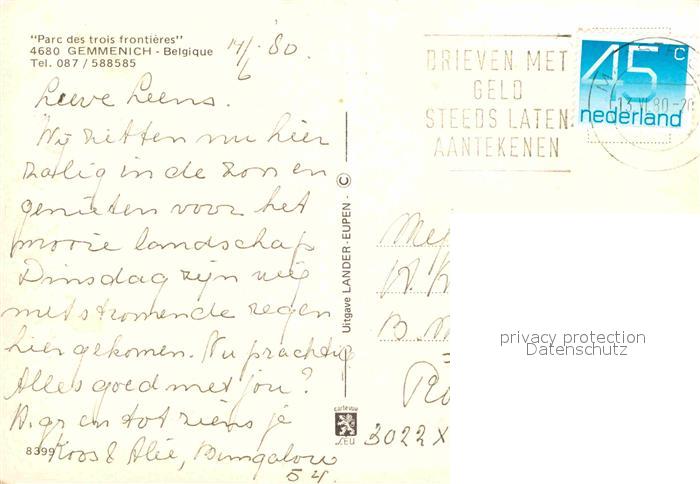 "Parc des trois frontières"
4680 GEMMENICH - Belgique
Tel. 087 / 588585
14/6 '80.
Lieve Leens.
Wij zitten nu hier
zalig in de zon en
genieten voor het
mooie landschap
Dinsdag zijn wij
met stromende regen
hier gekomen. Nu prachtig
Alles goed met jou?
H. gr. en tot ziens je
Koos & Alie, Bungalow
54.
8399
Uitgave LANDER - EUPEN - ©
cartevue
LEU
BRIEVEN MET
GELD
STEEDS LATEN
AANTEKENEN
45 c
nederland
13.VI.80
Mej
B.
3022 X
privacy protection
Datenschutz